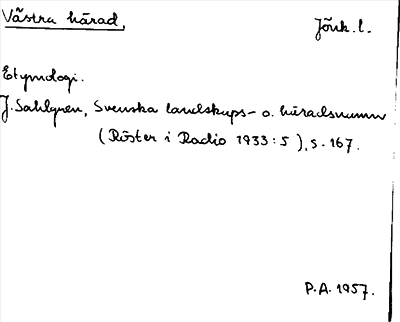 Västra härad. Jönk. l.
Etymologi.
J. Sahlgren, Svenska landskaps- o. häradsnamn
(Röster i Radio 1933:5), s. 167.
P.A. 1957.